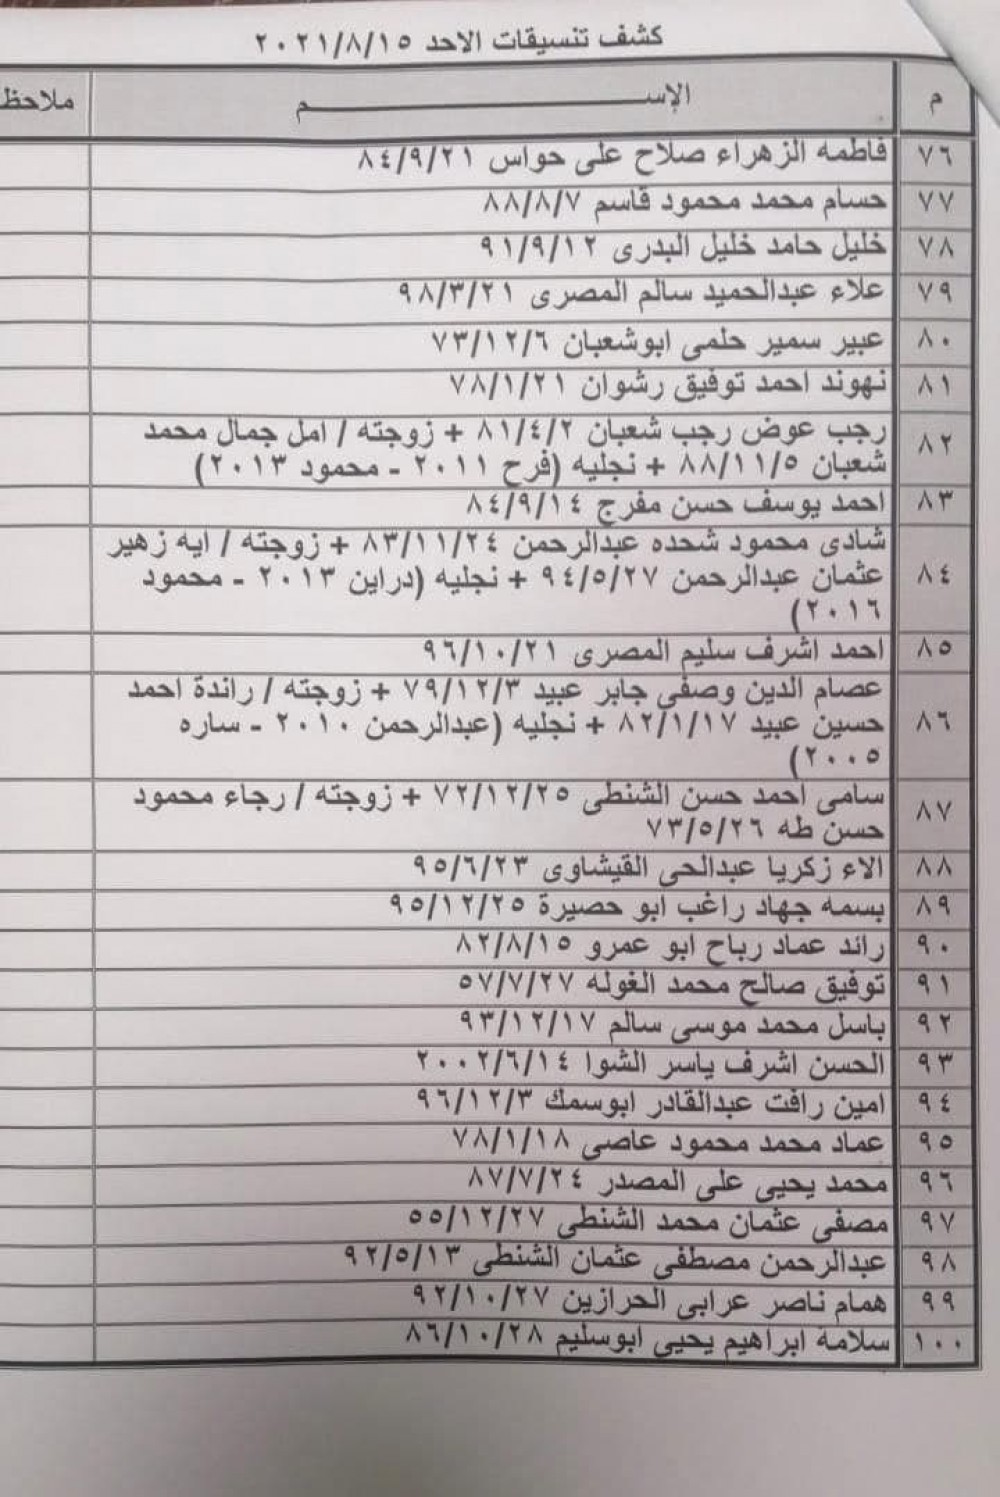 كشف تنسيقات الاحد ٢٠٢١/٨/١٥
م الإســـــم ملاحظ
٧٦ فاطمه الزهراء صلاح على حواس ٨٤/٩/٢١
٧٧ حسام محمد محمود قاسم ٨٨/٨/٧
٧٨ خليل حامد خليل البدرى ٩١/٩/١٢
٧٩ علاء عبدالحميد سالم المصرى ٩٨/٣/٢١
٨٠ عبير سمير حلمى ابوشعبان ٧٣/١٢/٦
٨١ نهوند احمد توفيق رشوان ٧٨/١/٢١
٨٢ رجب عوض رجب شعبان ٨١/٤/٢ + زوجته / امل جمال محمد
شعبان ٨٨/١١/٥ + نجليه (فرح ٢٠١١ - محمود ٢٠١٣)
٨٣ احمد يوسف حسن مفرج ٨٤/٩/١٤
٨٤ شادى محمود شحده عبدالرحمن ٨٣/١١/٢٤ + زوجته / ايه زهير
عثمان عبدالرحمن ٩٤/٥/٢٧ + نجليه (دراين ٢٠١٣ - محمود
٢٠١٦)
٨٥ احمد اشرف سليم المصرى ٩٦/١٠/٢١
٨٦ عصام الدين وصفى جابر عبيد ٧٩/١٢/٣ + زوجته / راندة احمد
حسين عبيد ٨٢/١/١٧ + نجليه (عبدالرحمن ٢٠١٠ - ساره
٢٠٠٥)
٨٧ سامى احمد حسن الشنطى ٧٢/١٢/٢٥ + زوجته / رجاء محمود
حسن طه ٧٣/٥/٢٦
٨٨ الاء زكريا عبدالحى القيشاوى ٩٥/٦/٢٣
٨٩ بسمه جهاد راغب ابو حصيرة ٩٥/١٢/٢٥
٩٠ رائد عماد رباح ابو عمرو ٨٢/٨/١٥
٩١ توفيق صالح محمد الغوله ٥٧/٧/٢٧
٩٢ باسل محمد موسى سالم ٩٣/١٢/١٧
٩٣ الحسن اشرف ياسر الشوا ٢٠٠٢/٦/١٤
٩٤ امين رافت عبدالقادر ابوسمك ٩٦/١٢/٣
٩٥ عماد محمد محمود عاصى ٧٨/١/١٨
٩٦ محمد يحيى على المصدر ٨٧/٧/٢٤
٩٧ مصفى عثمان محمد الشنطى ٥٥/١٢/٢٧
٩٨ عبدالرحمن مصطفى عثمان الشنطى ٩٢/٥/١٣
٩٩ همام ناصر عرابى الحرازين ٩٢/١٠/٢٧
١٠٠ سلامة ابراهيم يحيى ابوسليم ٨٦/١٠/٢٨